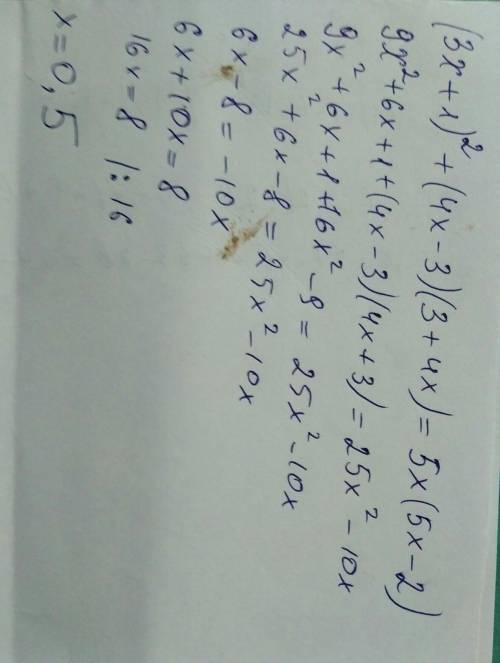 (3x+1)² + (4x-3)(3+4x) = 5x(5x-2)
9x² + 6x + 1 + (4x-3)(4x+3) = 25x² - 10x
9x² + 6x + 1 + 16x² - 9 = 25x² - 10x
25x² + 6x - 8 = 25x² - 10x
6x - 8 = -10x
6x + 10x = 8
16x = 8 |: 16
x = 0,5